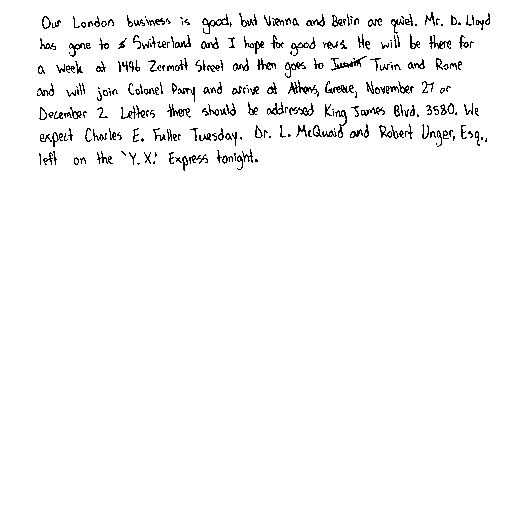 Our London business is good, but Vienna and Berlin are quiet. Mr. D. Lloyd
has gone to Switzerland and I hope for good news. He will be there for
a week at 1496 Zermott Street and then goes to Turin and Rome
and will join Colonel Parry and arrive at Athens, Greece, November 27 or
December 2. Letters there should be addressed King James Blvd. 3580. We
expect Charles E. Fuller Tuesday. Dr. L. McQuaid and Robert Unger, Esq.,
left on the 'Y.X.' Express tonight.